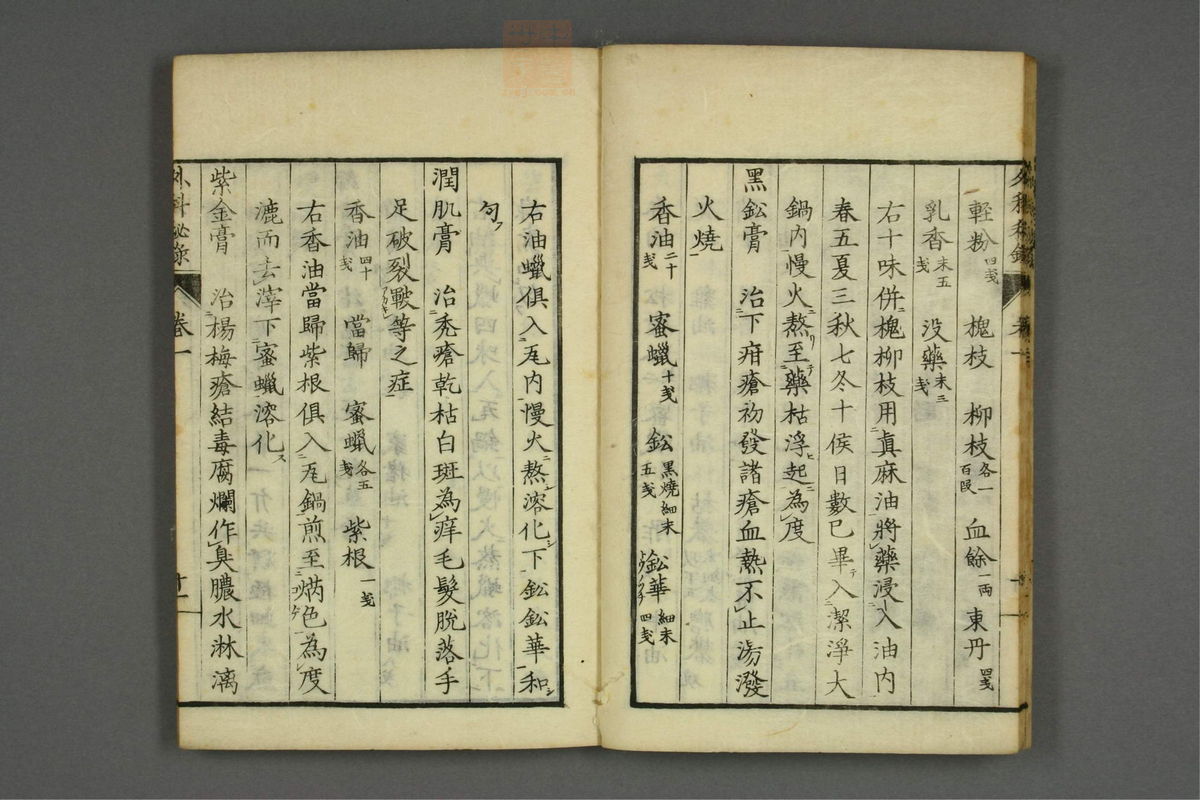 軽粉四戔 槐枝 柳枝各一百段 血餘一両 東丹四戔
乳香末五戔 没藥末三戔
右十味併槐柳枝用真麻油將藥浸入油内
春五夏三秋七冬十候日數已畢入潔淨大
鍋内慢火熬至藥枯浮起為度
黒鈆膏 治下疳瘡初發諸瘡血熱不止湯潑
火燒
香油二十戔 蜜蠟十戔 鈆黒燒細末五戔 鈆華細末四戔
右油蠟俱入瓦内慢火熬溶化下鈆鈆華和
匀
潤肌膏 治禿瘡乾枯白斑為痒毛髮脱落手
足破裂皸等之症
香油四十戔 當歸 蜜蠟各五戔 紫根一戔
右香油當歸紫根俱入瓦鍋煎至焫色為度
漉而去滓下蜜蠟溶化
紫金膏 治楊梅瘡結毒腐爛作臭膿水淋漓
外科秘录 卷一 十一